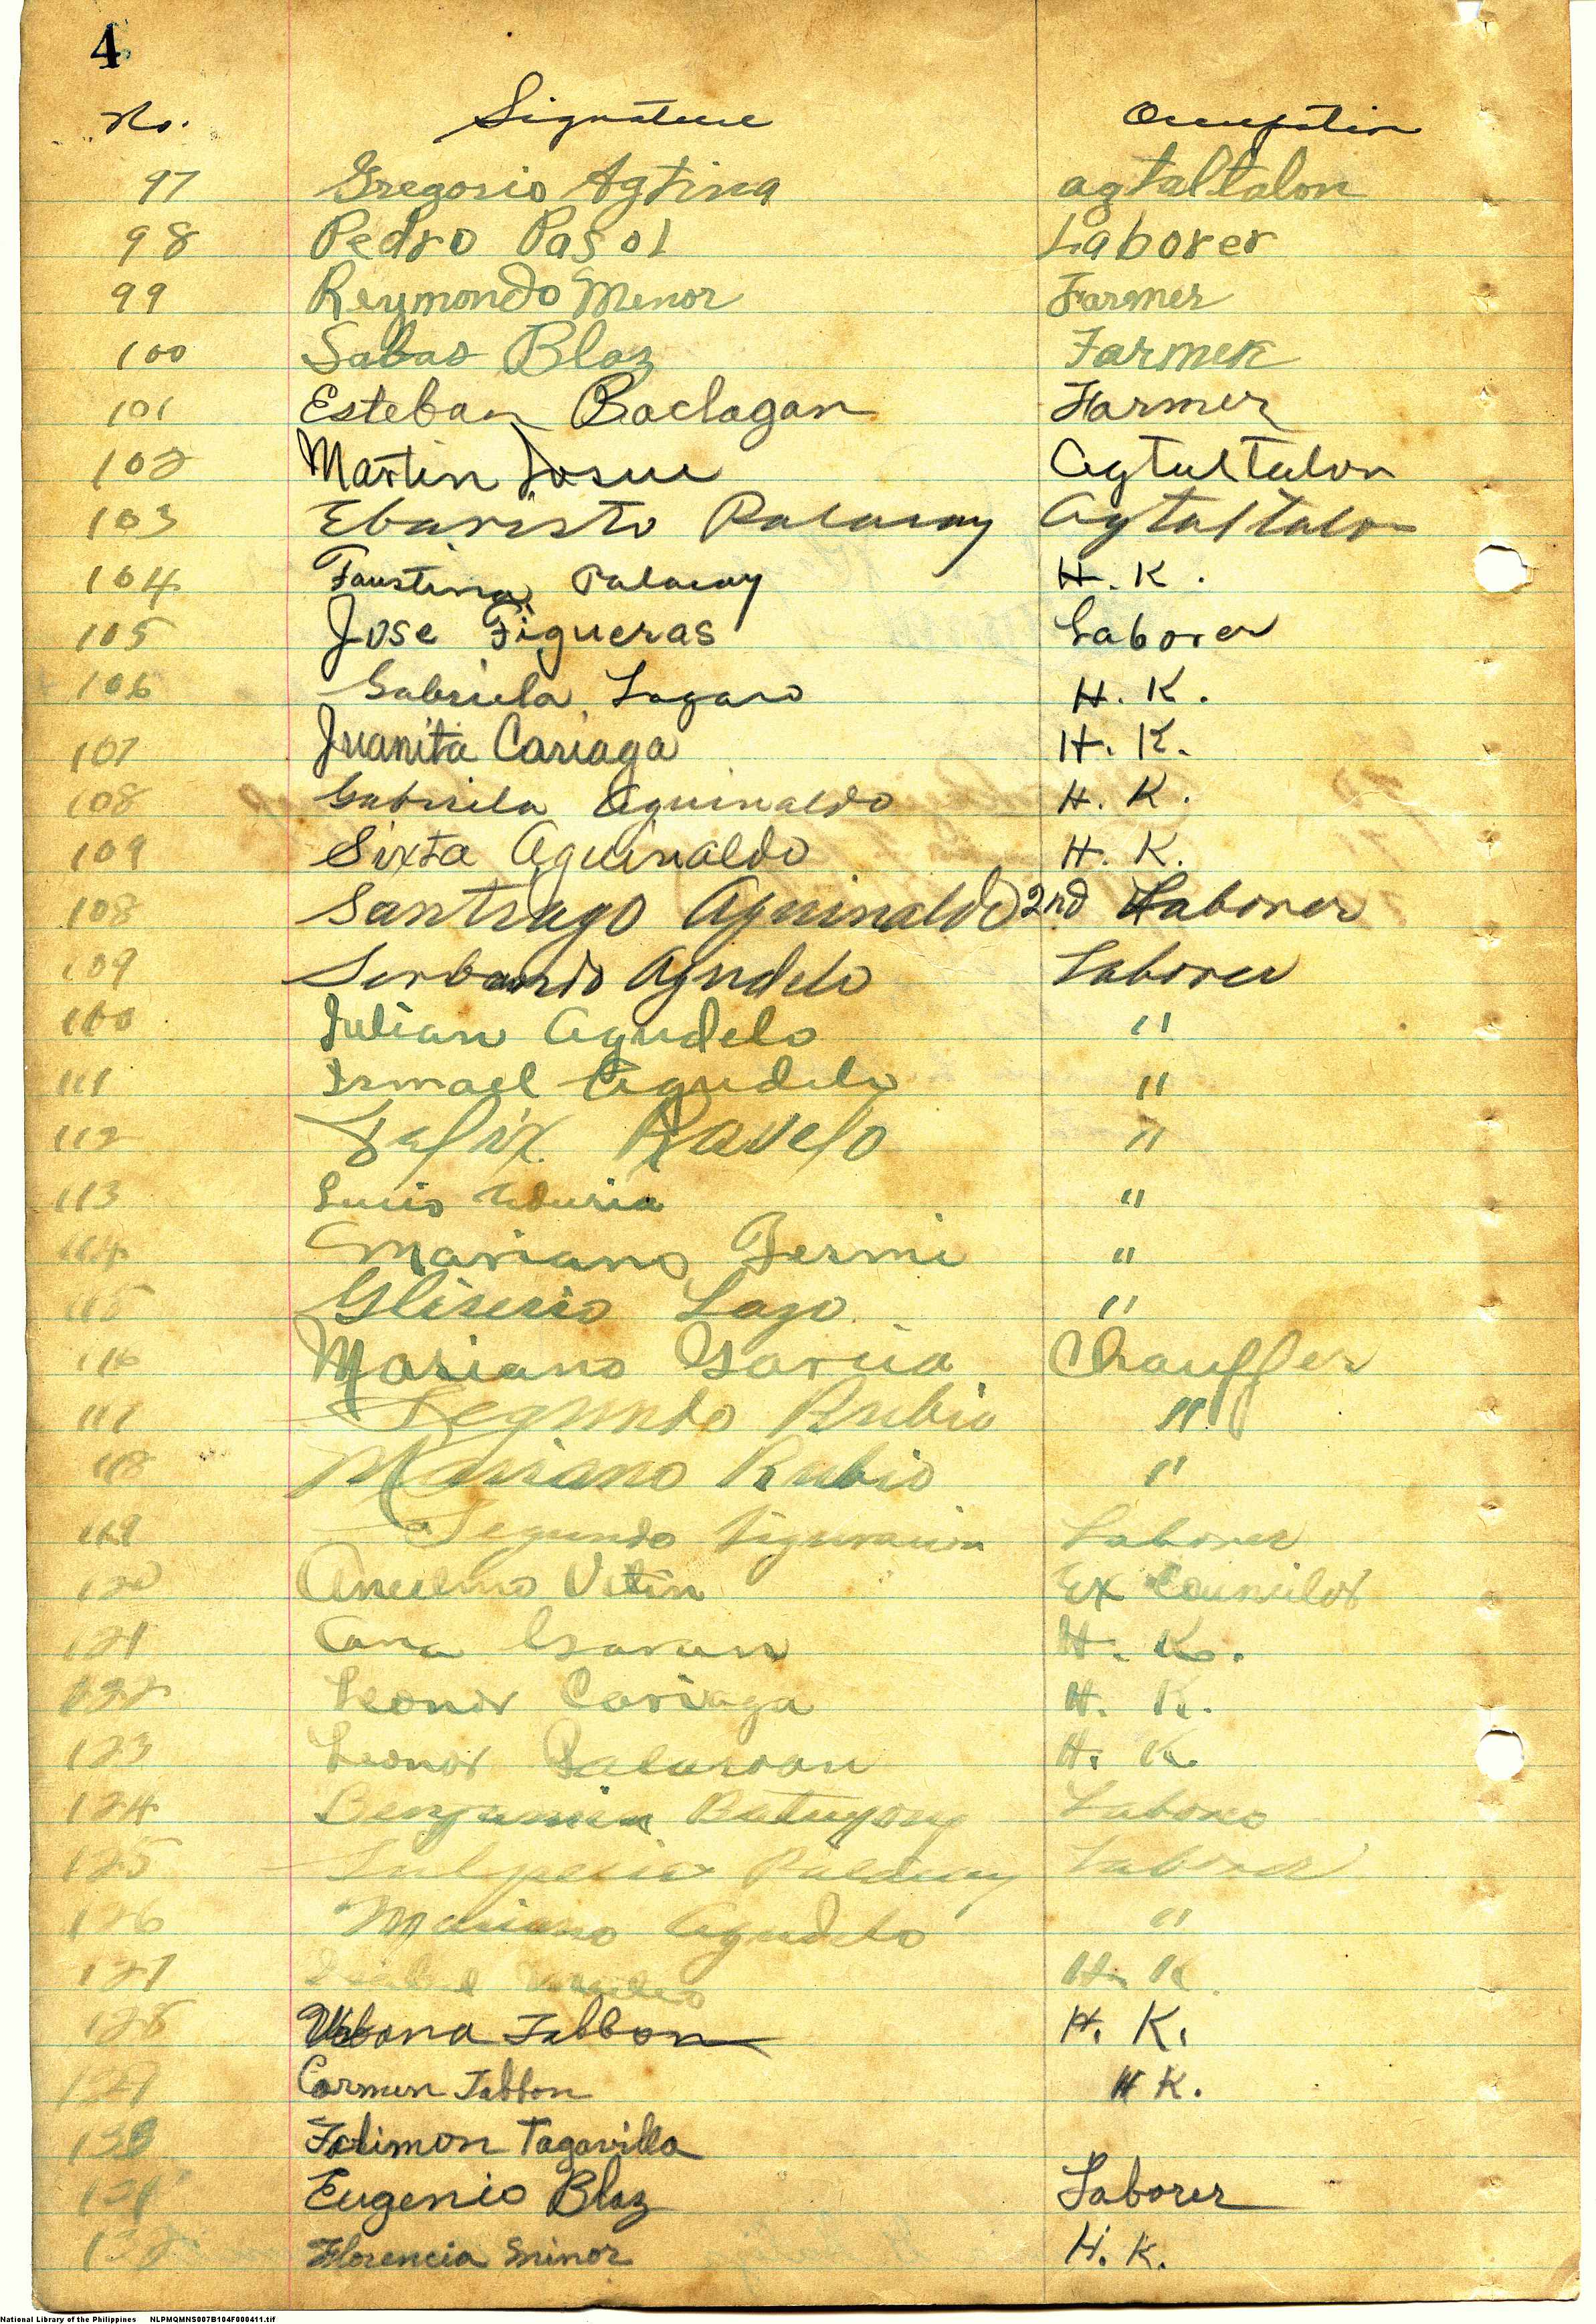 4
No. Signature Occupation
97 Gregorio Agtina agtaltalon
98 Pedro Pasol Laborer
99 Reymondo Menor Farmer
100 Sabas Blaz Farmer
101 Esteban Baclagan Farmer
102 Martin Josue Agtaltalon
103 Ebaristo Palacay Agtaltalon
104 Faustina Palacay H. K.
105 Jose Figueras Laborer
106 Gabriela Lagaro H. K.
107 Juanita Cariaga H. K.
108 Gabriela Aguinaldo H. K.
109 Sixta Aguinaldo H. K.
108 Santiago Aguinaldo 2nd Laborer
109 Agudelo Laborer
Julian Agudelo "
111 Ismael Agudelo "
112 Felix Ravelo "
113 Lucio "
114 Mariano Fermi "
115 Gliserio Lazo "
116 Mariano Garcia Chauffer
117 Segundo Rubio "
118 Mariano Rubio "
119 Segundo Laborer
120 Anselmo Vitin Ex Councilor
121 Ana H. K.
122 Leonor Cariaga H. K.
123 Leonor H. K.
124 Benjamin Batuyong
125 Palacay Laborer
126 Mariano Agudelo "
127 H. K.
128 Urbana Tabbon H. K.
129 Carmen Tabbon H K.
130 Felimon Tagavilla
131 Eugenio Blaz Laborer
132 Florencia Minor H. K.
National Library of the Philippines NLPMQMNS007B104F000411.tif